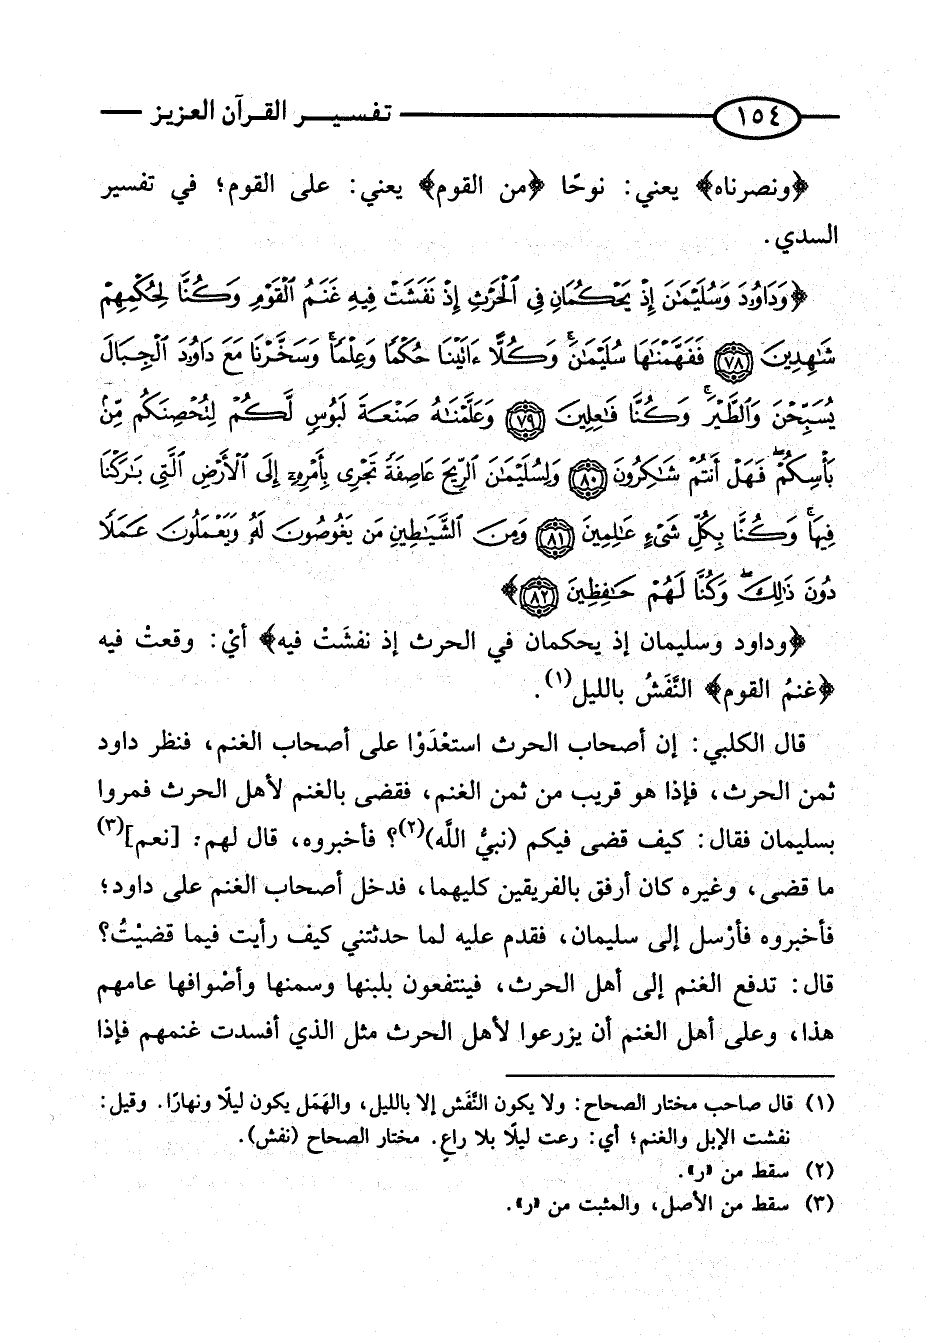 ١٥٤ تفسير القرآن العزيز
﴿ونصرناه﴾ يعني: نوحًا ﴿من القوم﴾ يعني: على القوم؛ في تفسير
السدي.
﴿وَدَاوُۥدَ وَسُلَيْمَٰنَ إِذْ يَحْكُمَانِ فِي ٱلْحَرْثِ إِذْ نَفَشَتْ فِيهِ غَنَمُ ٱلْقَوْمِ وَكُنَّا لِحُكْمِهِمْ
شَٰهِدِينَ ٧٨ فَفَهَّمْنَٰهَا سُلَيْمَٰنَۚ وَكُلًّا ءَاتَيْنَا حُكْمًا وَعِلْمًاۚ وَسَخَّرْنَا مَعَ دَاوُۥدَ ٱلْجِبَالَ
يُسَبِّحْنَ وَٱلطَّيْرَۚ وَكُنَّا فَٰعِلِينَ ٧٩ وَعَلَّمْنَٰهُ صَنْعَةَ لَبُوسٍ لَّكُمْ لِتُحْصِنَكُم مِّنۢ
بَأْسِكُمْۖ فَهَلْ أَنتُمْ شَٰكِرُونَ ٨٠ وَلِسُلَيْمَٰنَ ٱلرِّيحَ عَاصِفَةً تَجْرِى بِأَمْرِهِۦٓ إِلَى ٱلْأَرْضِ ٱلَّتِى بَٰرَكْنَا
فِيهَاۚ وَكُنَّا بِكُلِّ شَىْءٍ عَٰلِمِينَ ٨١ وَمِنَ ٱلشَّيَٰطِينِ مَن يَغُوصُونَ لَهُۥ وَيَعْمَلُونَ عَمَلًا
دُونَ ذَٰلِكَۖ وَكُنَّا لَهُمْ حَٰفِظِينَ ٨٢﴾
﴿وداود وسليمان إذ يحكمان في الحرث إذ نفشَتْ فيه﴾ أيْ: وقعتْ فيه
﴿غنمُ القوم﴾ النَّفَشُ بالليل(١).
قال الكلبي: إن أصحاب الحرث استعْدَوْا على أصحاب الغنم، فنظر داود
ثمن الحرث، فإذا هو قريب من ثمن الغنم، فقضى بالغنم لأهل الحرث فمروا
بسليمان فقال: كيف قضى فيكم (نبيُّ اللَّه)(٢)؟ فأخبروه، قال لهم: [نعم](٣)
ما قضى، وغيره كان أرفق بالفريقين كليهما، فدخل أصحاب الغنم على داود؛
فأخبروه فأرْسل إلى سليمان، فقدم عليه لما حدثتني كيف رأيت فيما قضيْتُ؟
قال: تدفع الغنم إلى أهل الحرث، فينتفعون بلبنها وسمنها وأصْوافها عامهم
هذا، وعلى أهل الغنم أن يزرعوا لأهل الحرث مثل الذي أفسدت غنمهم فإذا
(١) قال صاحب مختار الصحاح: ولا يكون النَّفَش إلا بالليل، والهَمَل يكون ليلًا ونهارًا. وقيل:
نفشت الإبل والغنم؛ أي: رعت ليلًا بلا راعٍ. مختار الصحاح (نفش).
(٢) سقط من «ر».
(٣) سقط من الأصل، والمثبت من «ر».